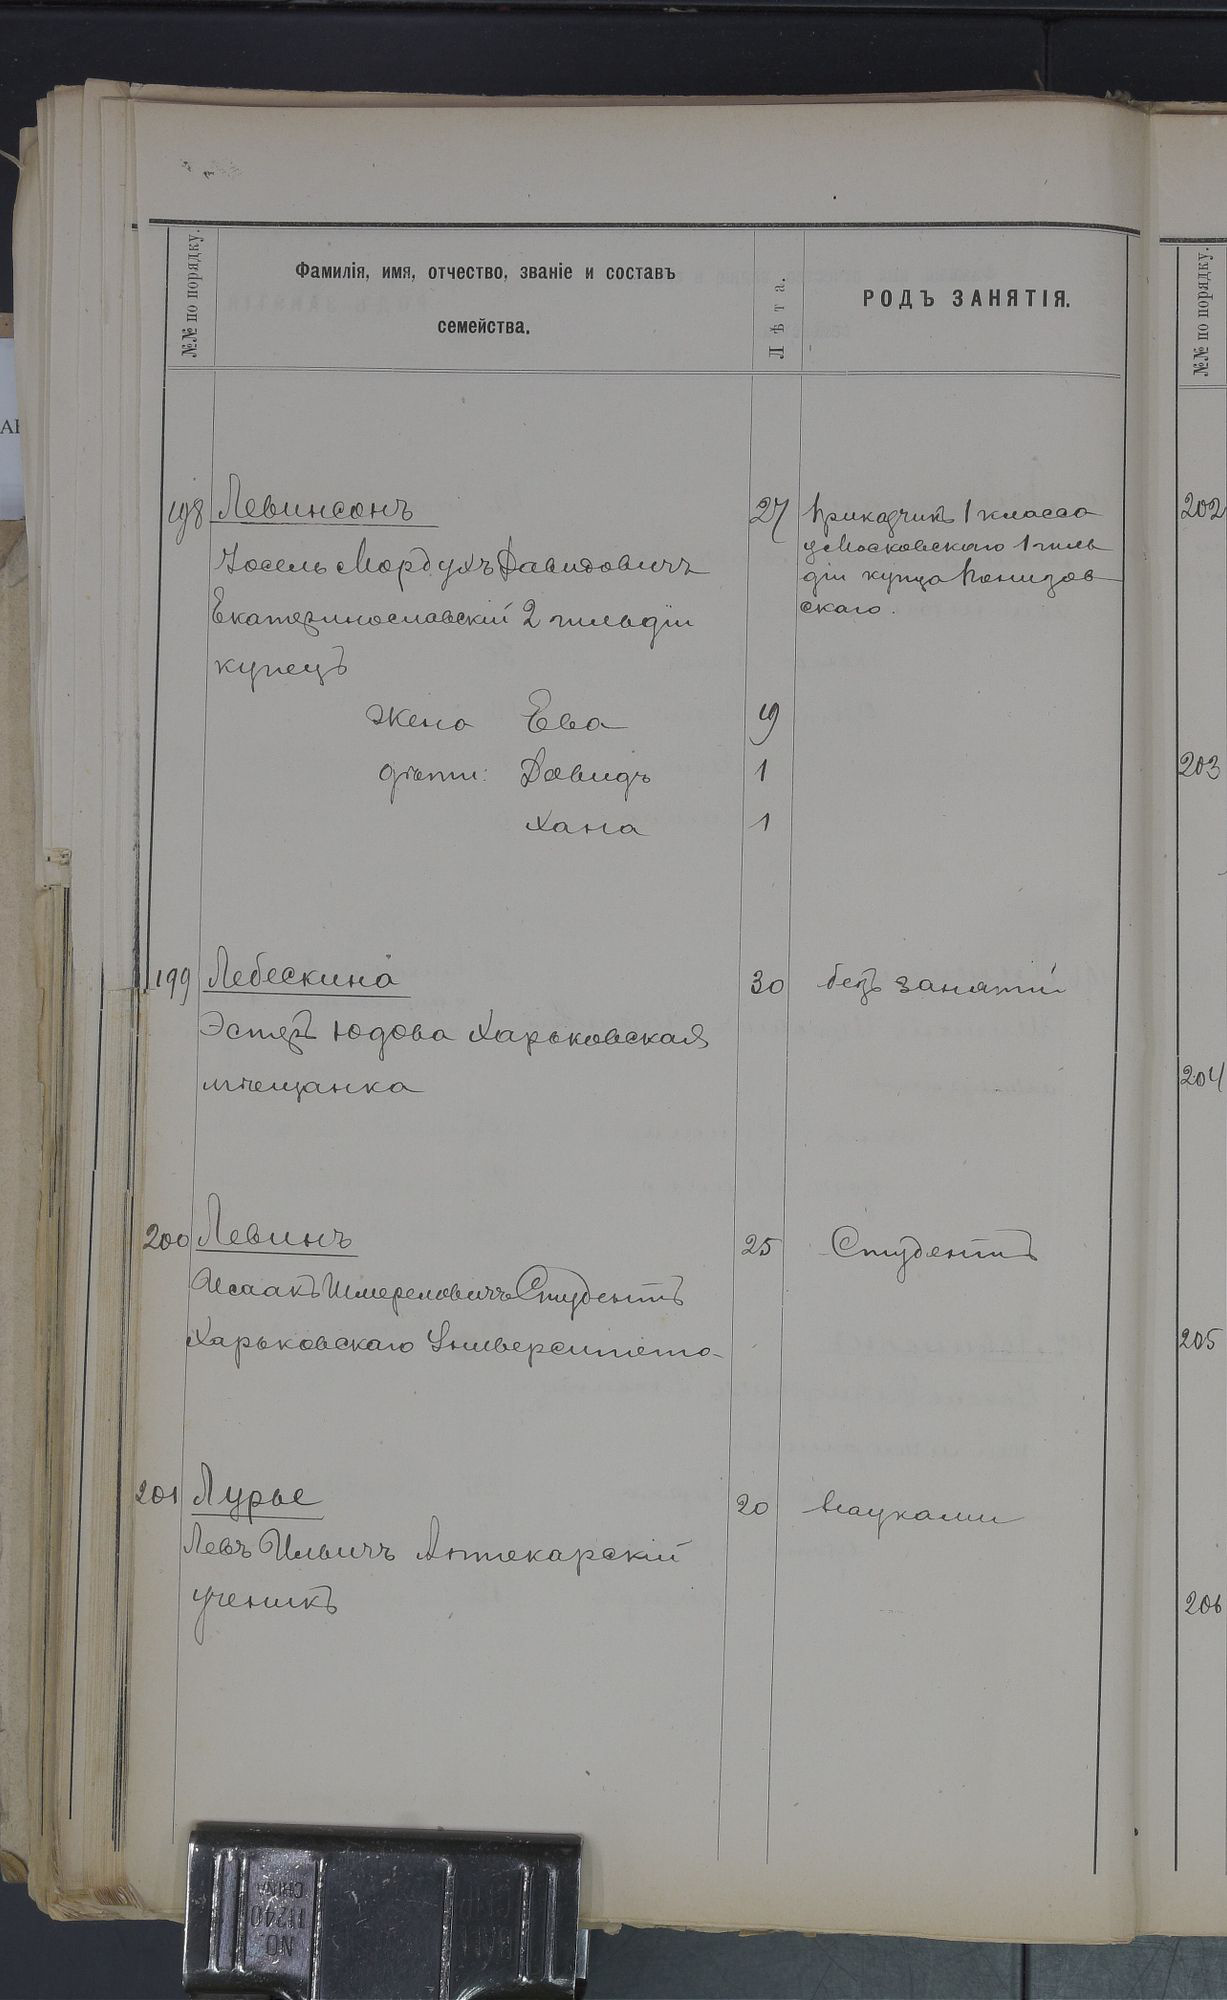 №№ по порядку.
Фамилія, имя, отчество, званіе и составъ
семейства.
Лѣта.
РОДЪ ЗАНЯТІЯ.
№№ по порядку.
198 Левинсонъ 27 Приказчикъ 1 класса
у Московскаго 1 гиль
Іосель Мордухъ Давидовичъ
діи купца Понизов
Екатеринославскій 2 гильдіи
скаго.
купецъ
жена Ева 19
дѣти: Давидъ 1
Хана 1
199 Лебескина 30 безъ занятій
Эстеръ Юдова Харьковская
мѣщанка
200 Левинъ 25 Студентъ
Исаакъ Шмереловичъ Студентъ
Харьковскаго Университета
201 Лурье 20 Науками
Левъ Ильичъ Аптекарскій
ученикъ
202
203
204
205
206
NO.
11240
CHINA